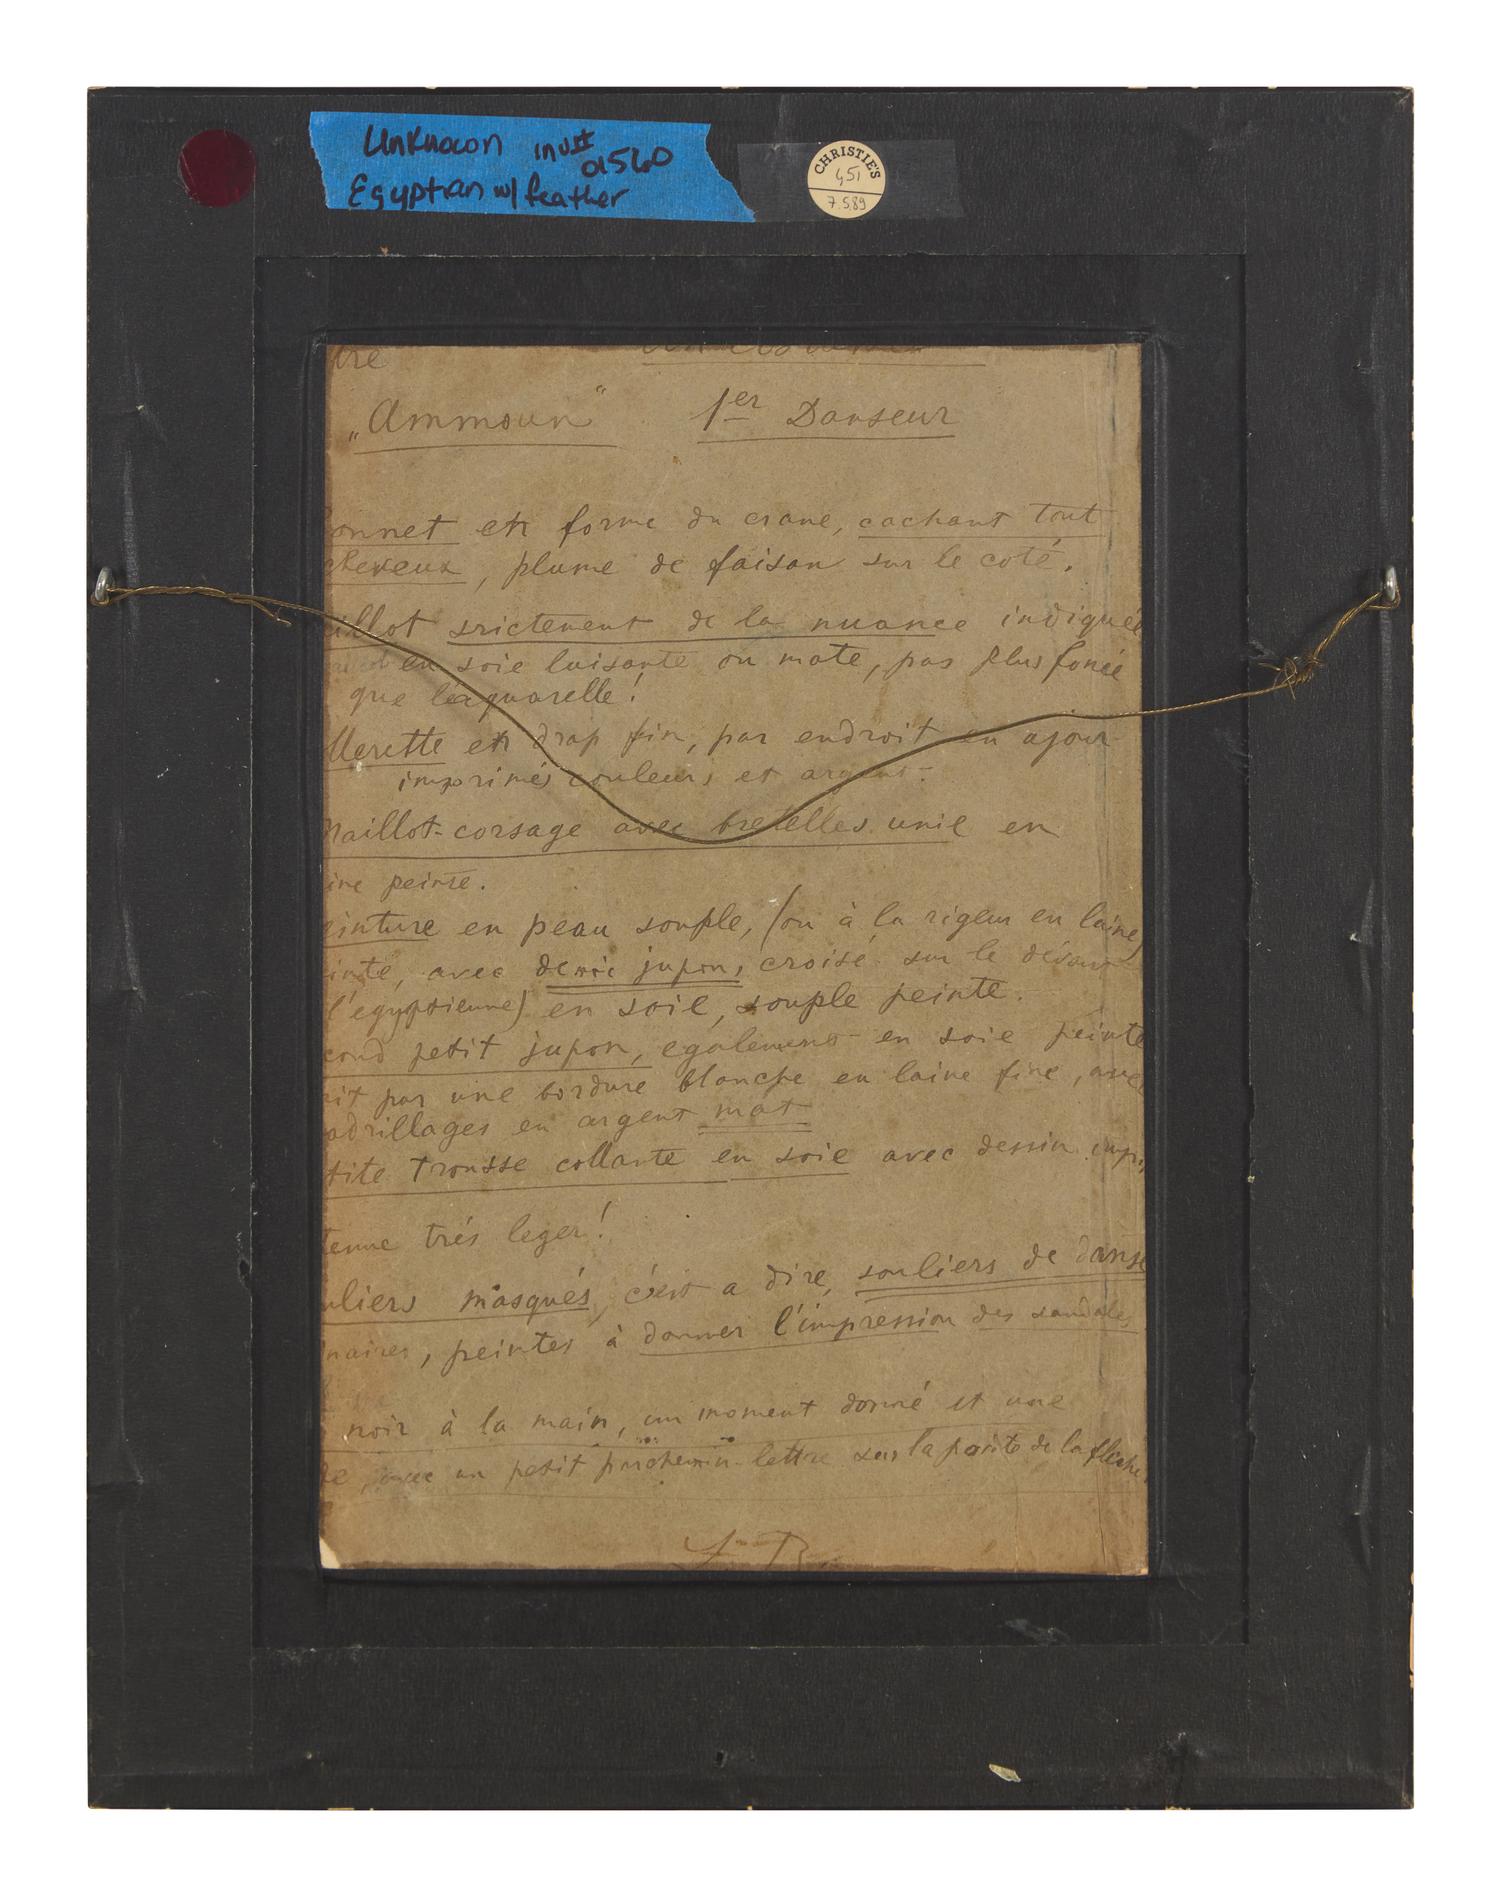 Unknown inv#
a1560
Egyptian w/ feather
CHRISTIE'S
451
7.5.89
tre
„Ammoun" 1er Danseur
onnet en forme du crane, cachant tout
cheveux, plume de faison sur le coté.
illot srictement de la nuance indiquée
en soie luisante ou mate, pas plus foncée
que l'aquarelle!
llerette en drap fin, par endroit en ajour
imprimés couleurs et argent.
Maillot-corsage avec bretelles unie en
ine peinte.
einture en peau souple, (ou à la rigeur en laine)
inte, avec demie jupon, croisé sur le devant
l'egyptienne) en soie, souple peinte.
cond petit jupon, egalement en soie peinte
it par une bordure blanche en laine fine, avec
adrillages en argent mat
tite Trousse collante en soie avec dessin
tenue trés leger!
uliers masqués, c'est a dire, souliers de danse
naires, peintes à donner l'impression des sandales
noir à la main, un moment donné et une
avec un petit parchemin-lettre sur la pointe de la fleche